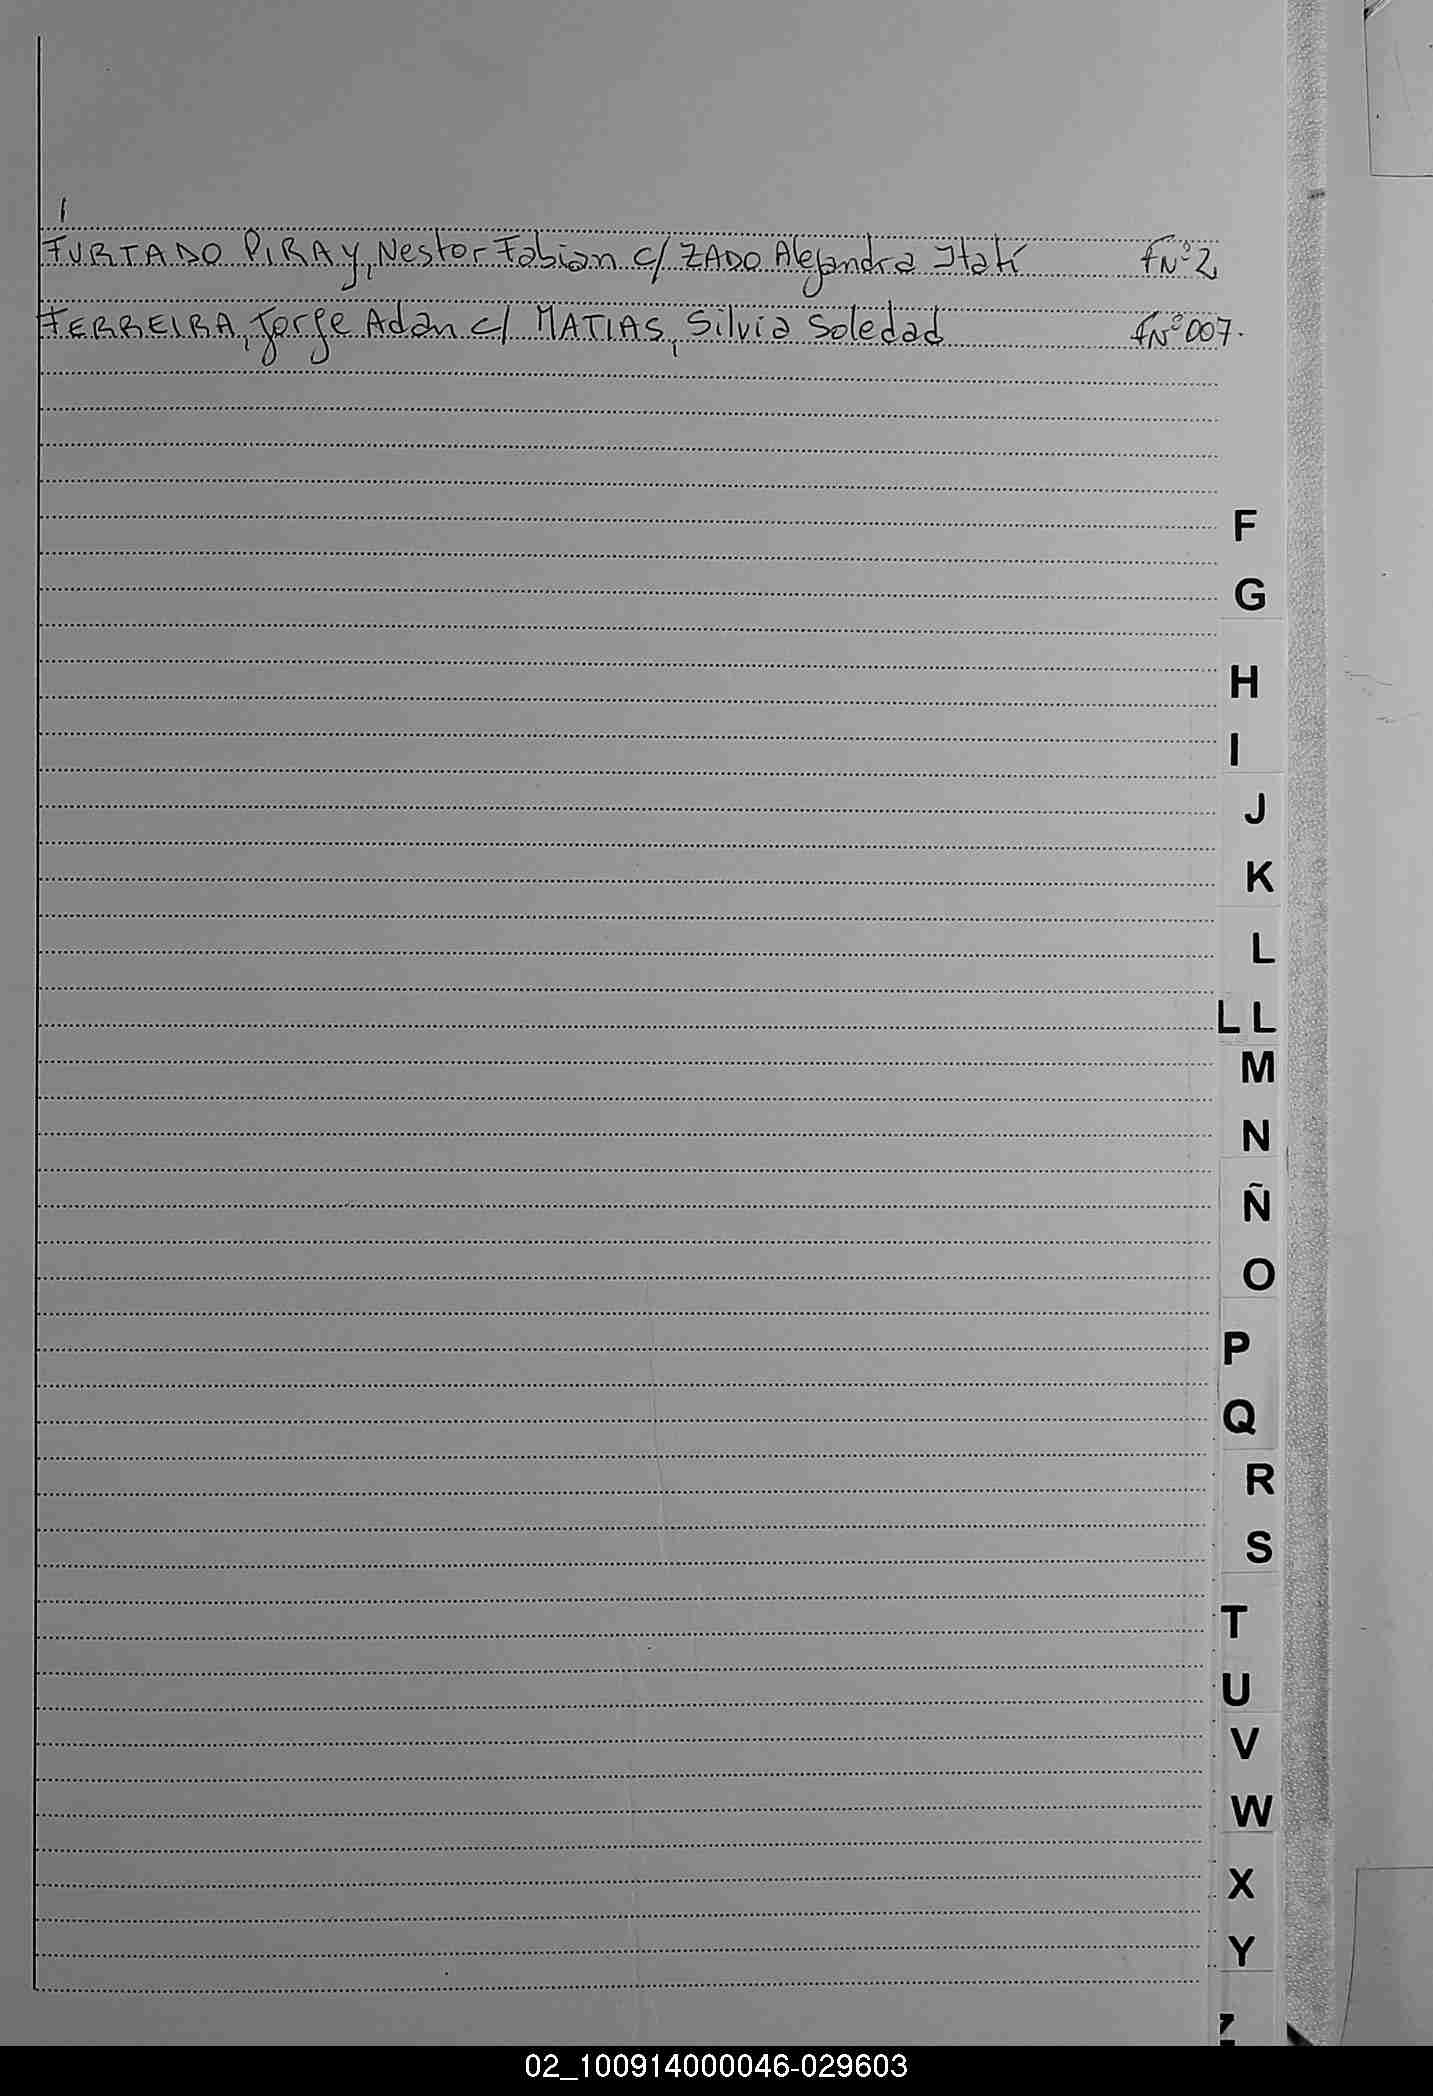 FURTADO PIRAY, Nestor Fabian c/ ZADO Alejandra Itatí FNº 2
FERREIRA, Jorge Adan c/ MATIAS, Silvia Soledad FNº 007.
F
G
H
I
J
K
L
LL
M
N
Ñ
O
P
Q
R
S
T
U
V
W
X
Y
Z
02_100914000046-029603